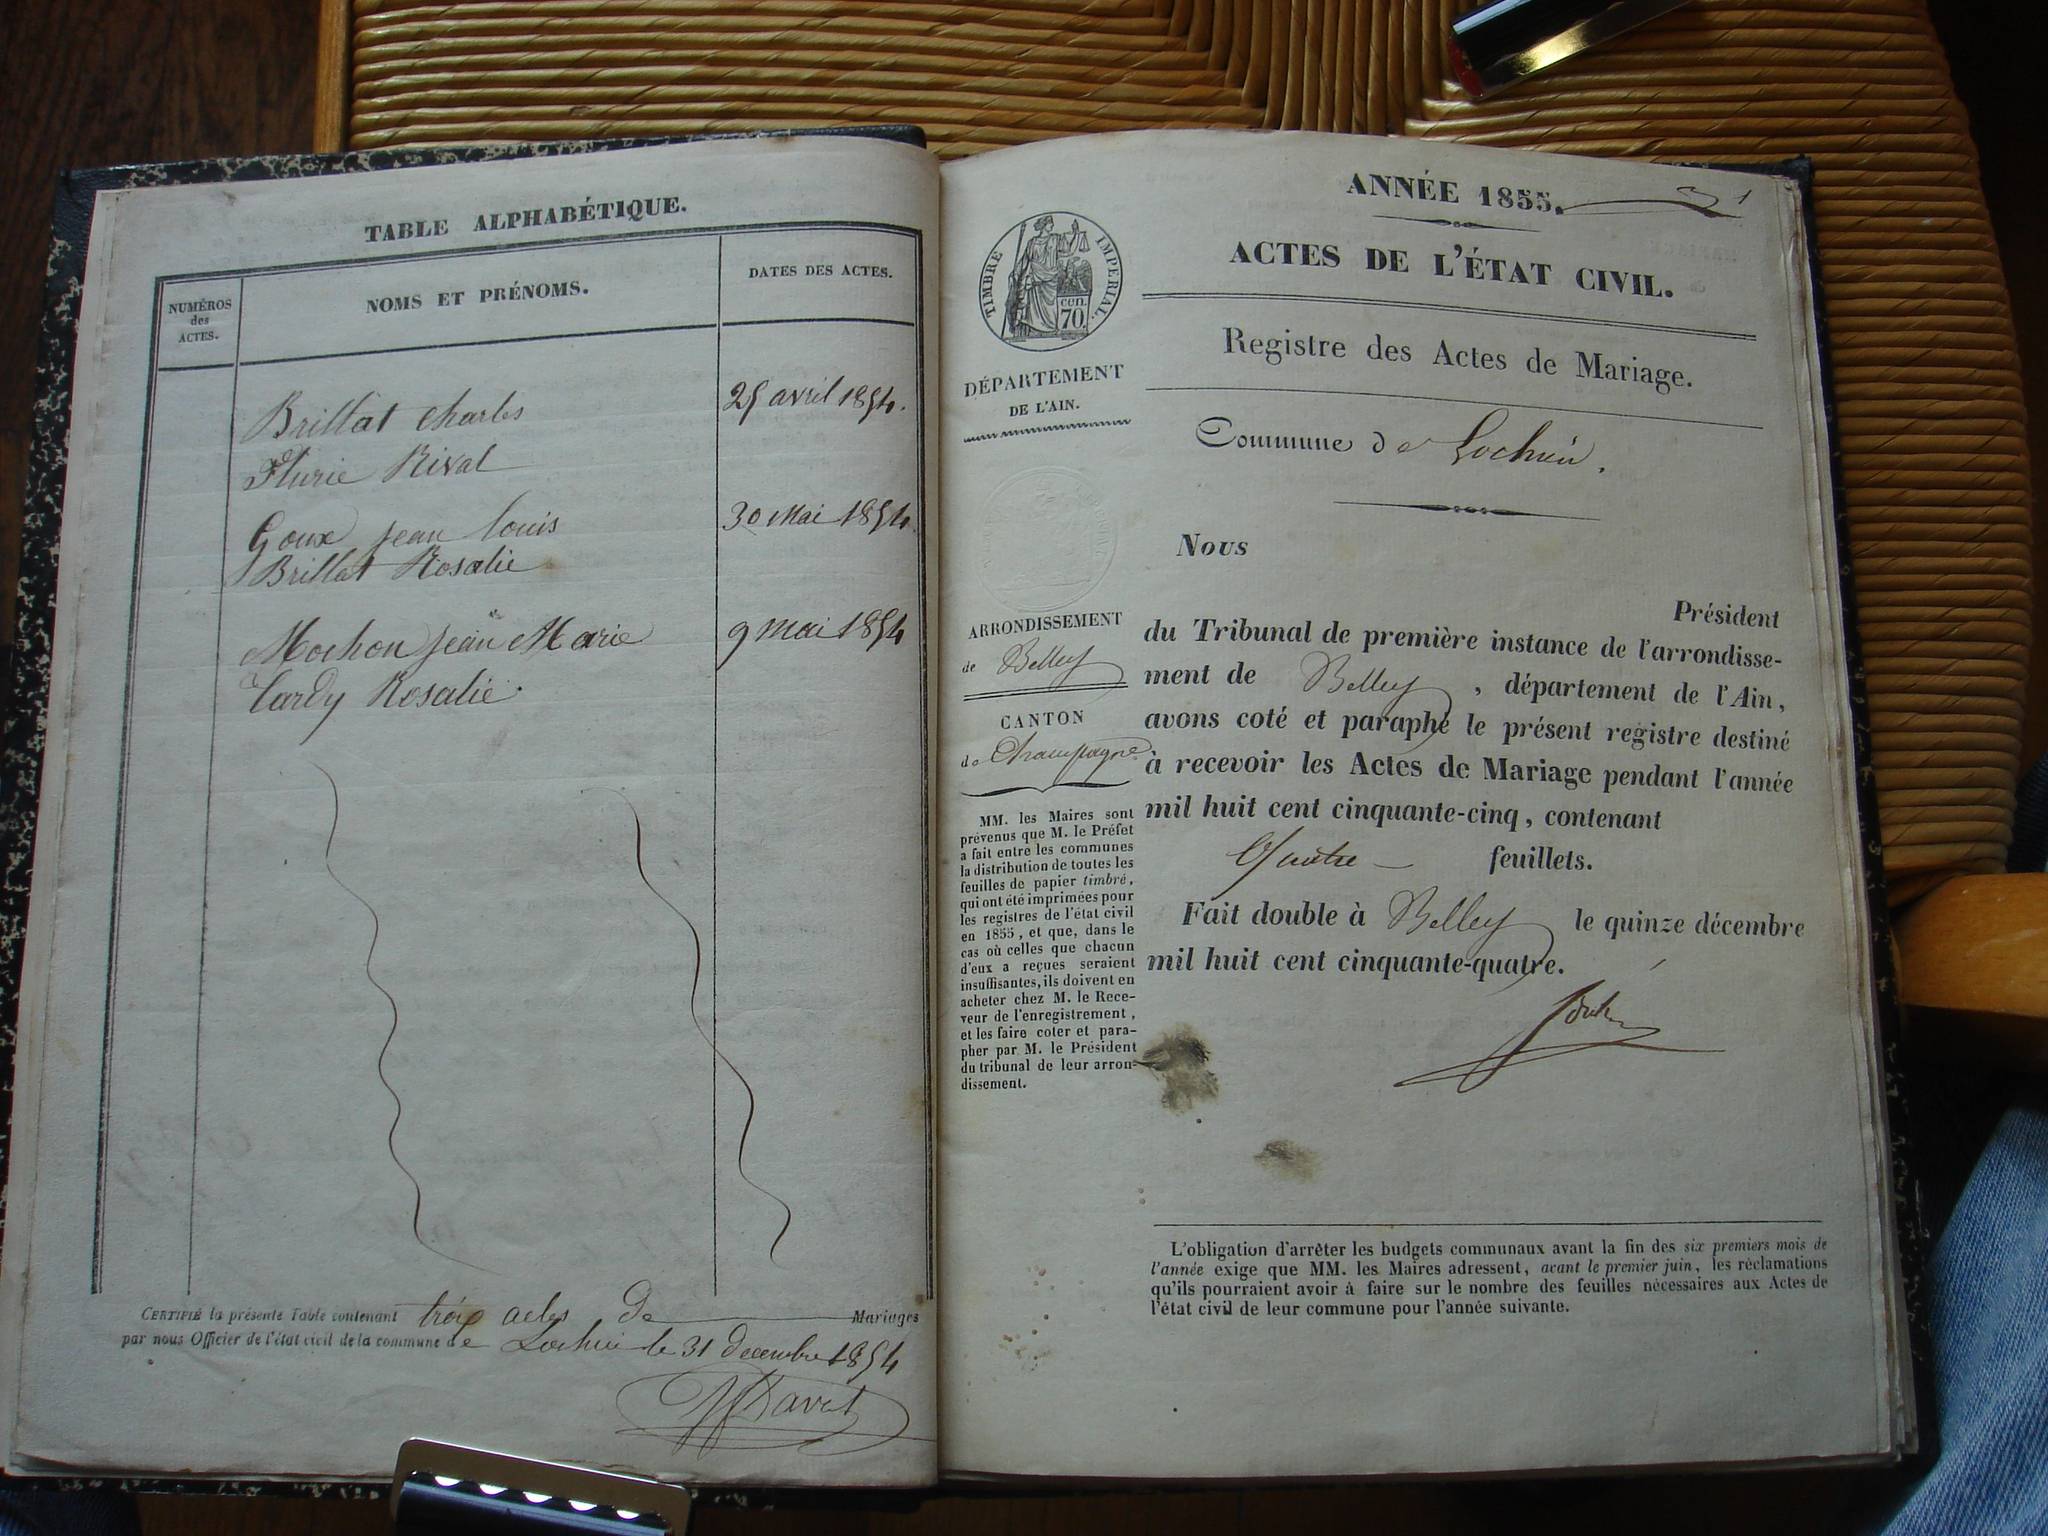 TABLE ALPHABÉTIQUE.
NUMÉROS
des
ACTES.
NOMS ET PRÉNOMS.
DATES DES ACTES.
Brillat Charles
25 avril 1854.
Flurie Rival
Goux jean louis
30 Mai 1854
Brillat Rosalie
Mochon jean Marie
9 Mai 1854
Tardy Rosalie.
CERTIFIÉ la présente Table contenant trois actes de Mariages
par nous Officier de l'état civil de la commune de Lochieu le 31 Decembre 1854
ANNÉE 1855.
1
ACTES DE L'ÉTAT CIVIL.
TIMBRE IMPERIAL.
cen.
70.
Registre des Actes de Mariage.
DÉPARTEMENT
DE L'AIN.
Commune de Lochieu.
Nous
Président
ARRONDISSEMENT
de Belley
CANTON
de Champagne
MM. les Maires sont
prévenus que M. le Préfet
a fait entre les communes
la distribution de toutes les
feuilles de papier timbré,
qui ont été imprimées pour
les registres de l'état civil
en 1855, et que, dans le
cas où celles que chacun
d'eux a reçues seraient
insuffisantes, ils doivent en
acheter chez M. le Rece-
veur de l'enregistrement,
et les faire coter et para-
pher par M. le Président
du tribunal de leur arron-
dissement.
du Tribunal de première instance de l'arrondisse-
ment de Belley, département de l'Ain,
avons coté et paraphé le présent registre destiné
à recevoir les Actes de Mariage pendant l'année
mil huit cent cinquante-cinq, contenant
Quatre feuillets.
Fait double à Belley le quinze décembre
mil huit cent cinquante-quatre.
L'obligation d'arrêter les budgets communaux avant la fin des six premiers mois de
l'année exige que MM. les Maires adressent, avant le premier juin, les réclamations
qu'ils pourraient avoir à faire sur le nombre des feuilles nécessaires aux Actes de
l'état civil de leur commune pour l'année suivante.